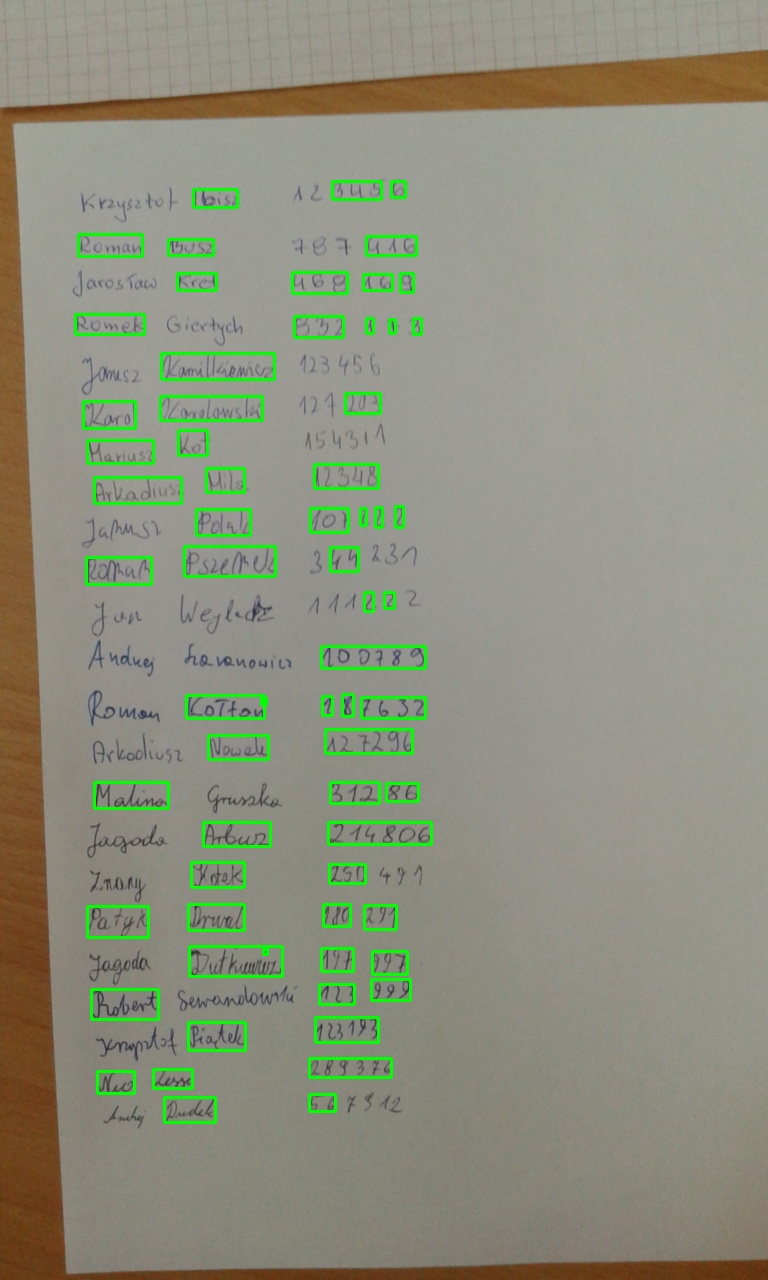 Krzysztof Ibisz 12 3456
Roman Busz 787 416
Jarosław Kret 468 169
Romek Giertych 332 173
Janusz Kamilkiewicz 123456
Karol Karolowski 127 203
Mariusz Kot 154311
Arkadiusz Mils 12348
Janusz Polak 107 222
Roman Pszemek 344 231
Jan 111222
Andrzej 100789
Roman Kołton 187632
Arkadiusz Nowak 127296
Malina Gruszka 312 86
Jagoda Arbuz 214806
Znany Kotek 250 491
Patyk Drwal 180 291
Jagoda Dutkiewicz 197 997
Robert Lewandowski 123 999
Krzysztof Piątek 123193
289376
Andrzej Dudek 56 7312